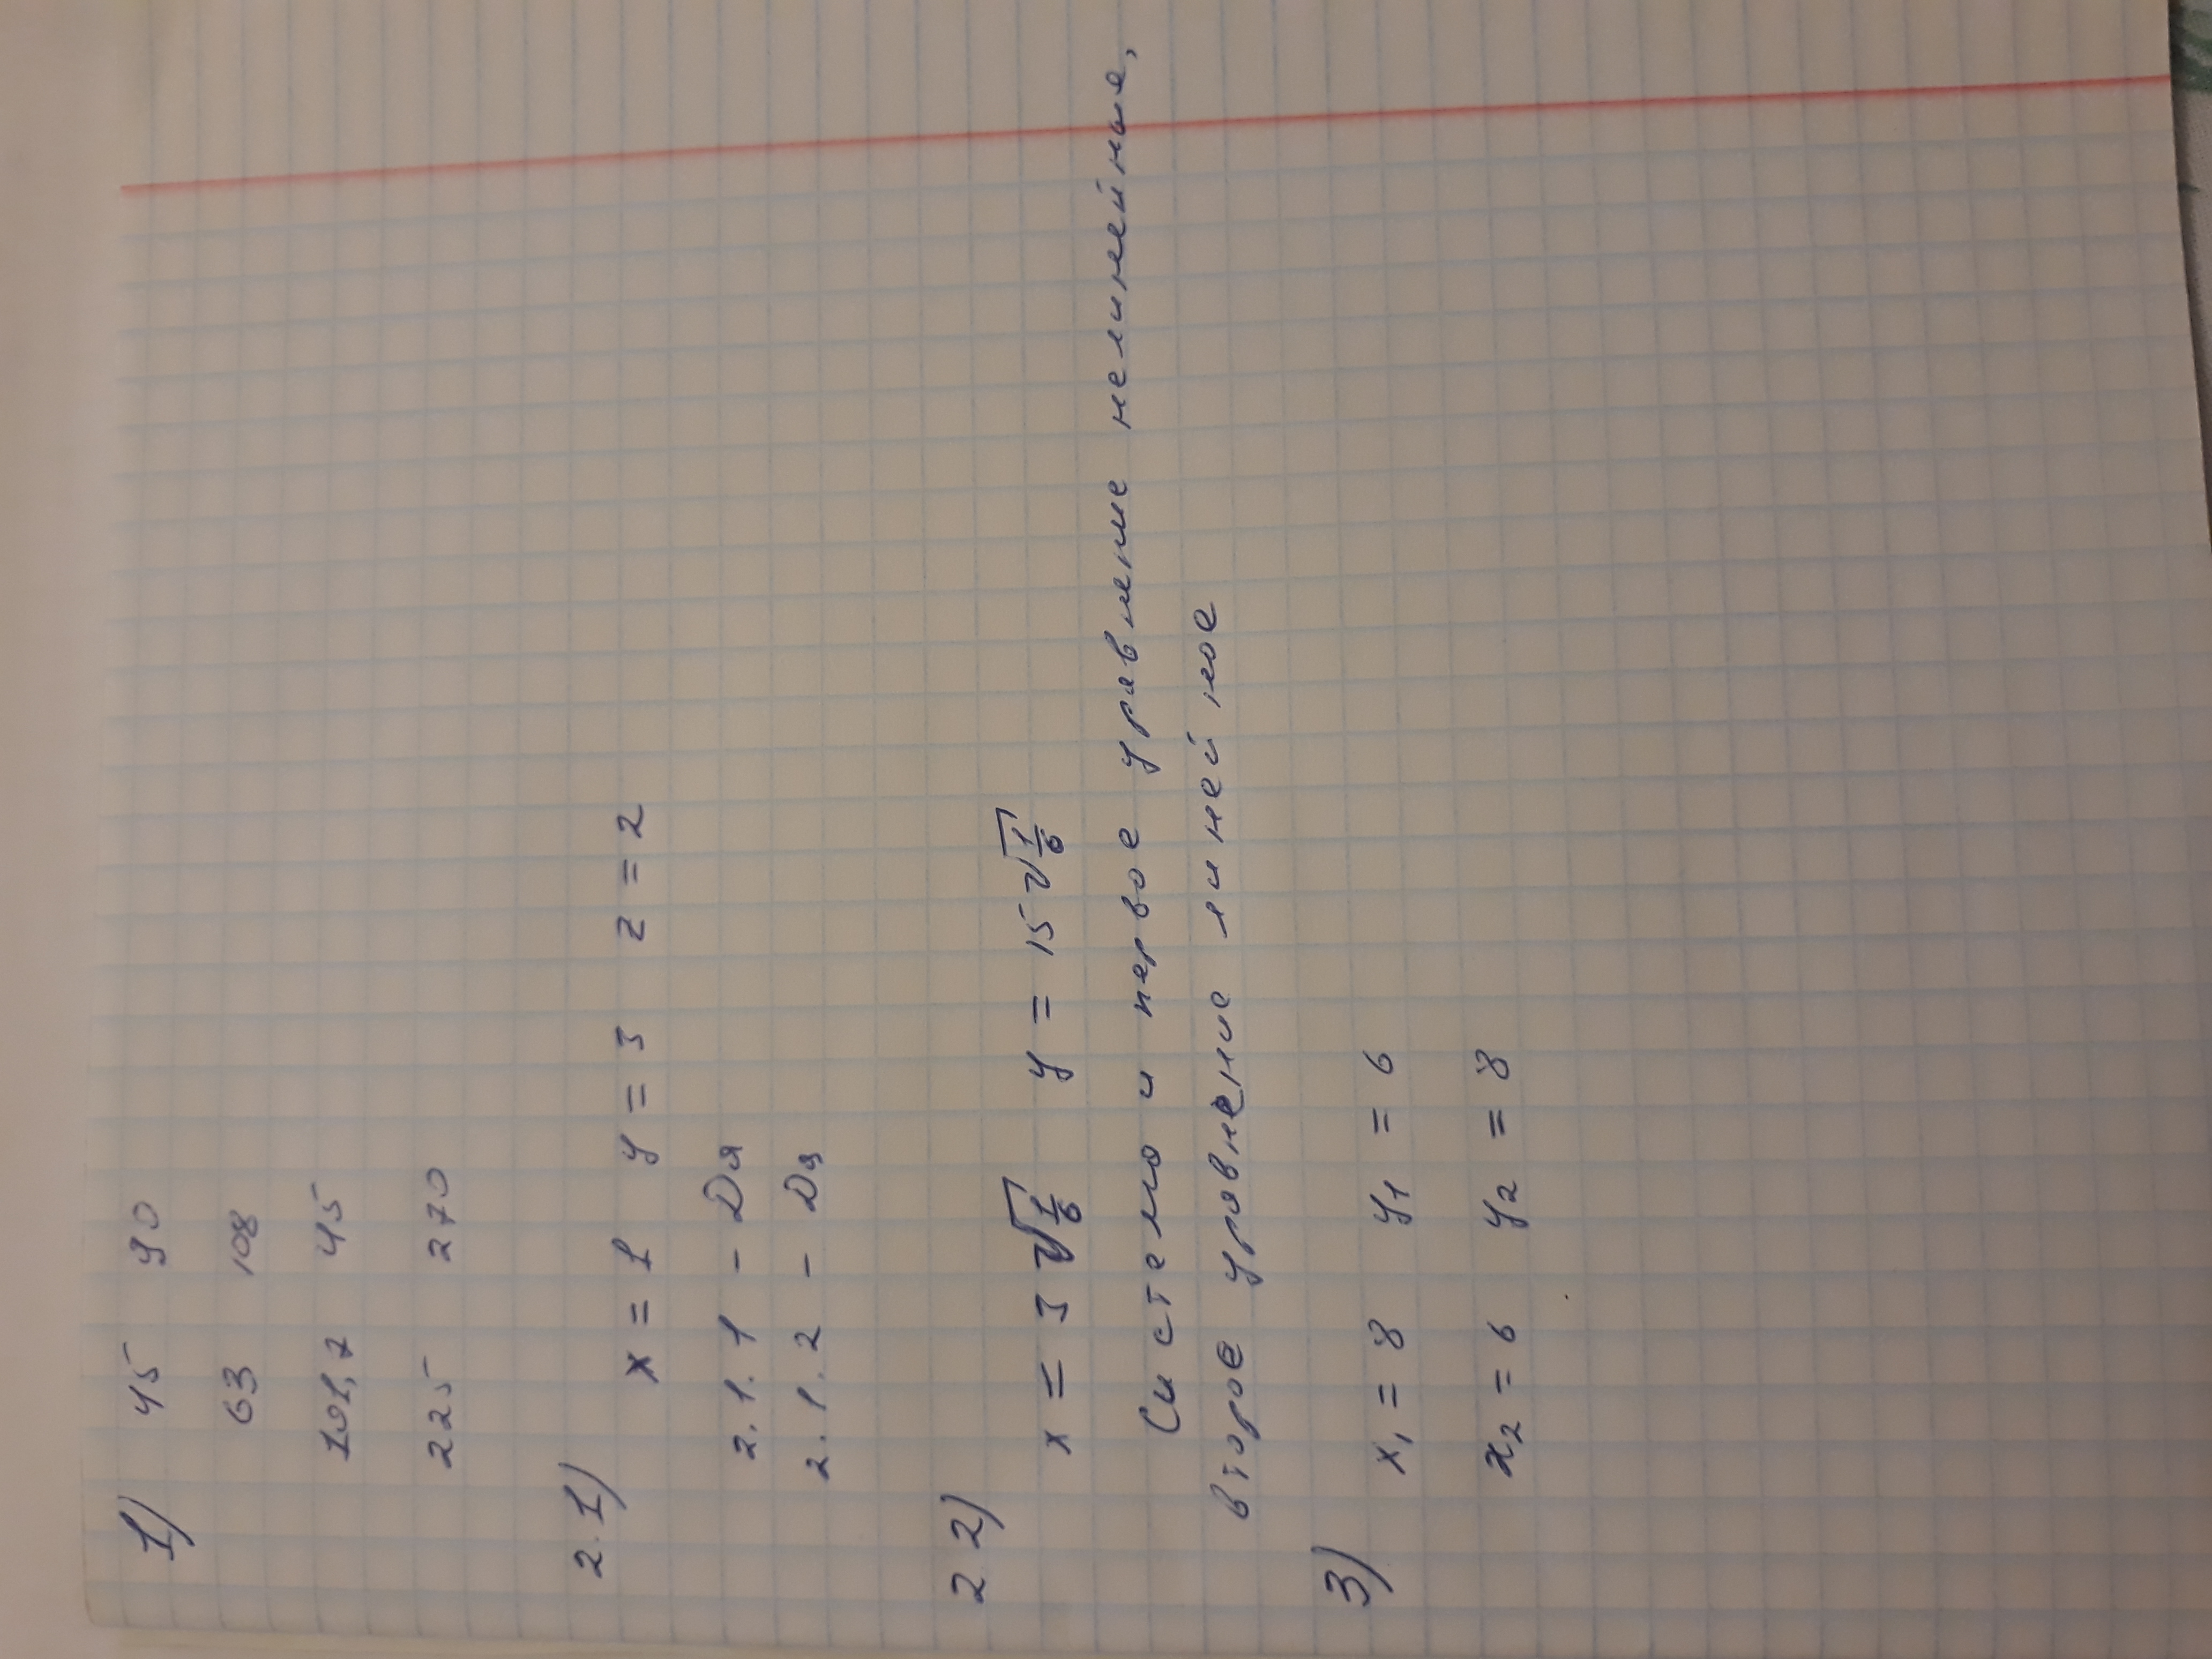 1) 45 90
63 108
191,7 45
225 270
2.1)
x = 1 y = 3 z = 2
2.1.1 - Да
2.1.2 - Да
2 2)
x = 3√1/6 y = 15√1/6
Система и первое уравнение нелинейные,
второе уравнение линейное
3)
x₁ = 8 y₁ = 6
x₂ = 6 y₂ = 8